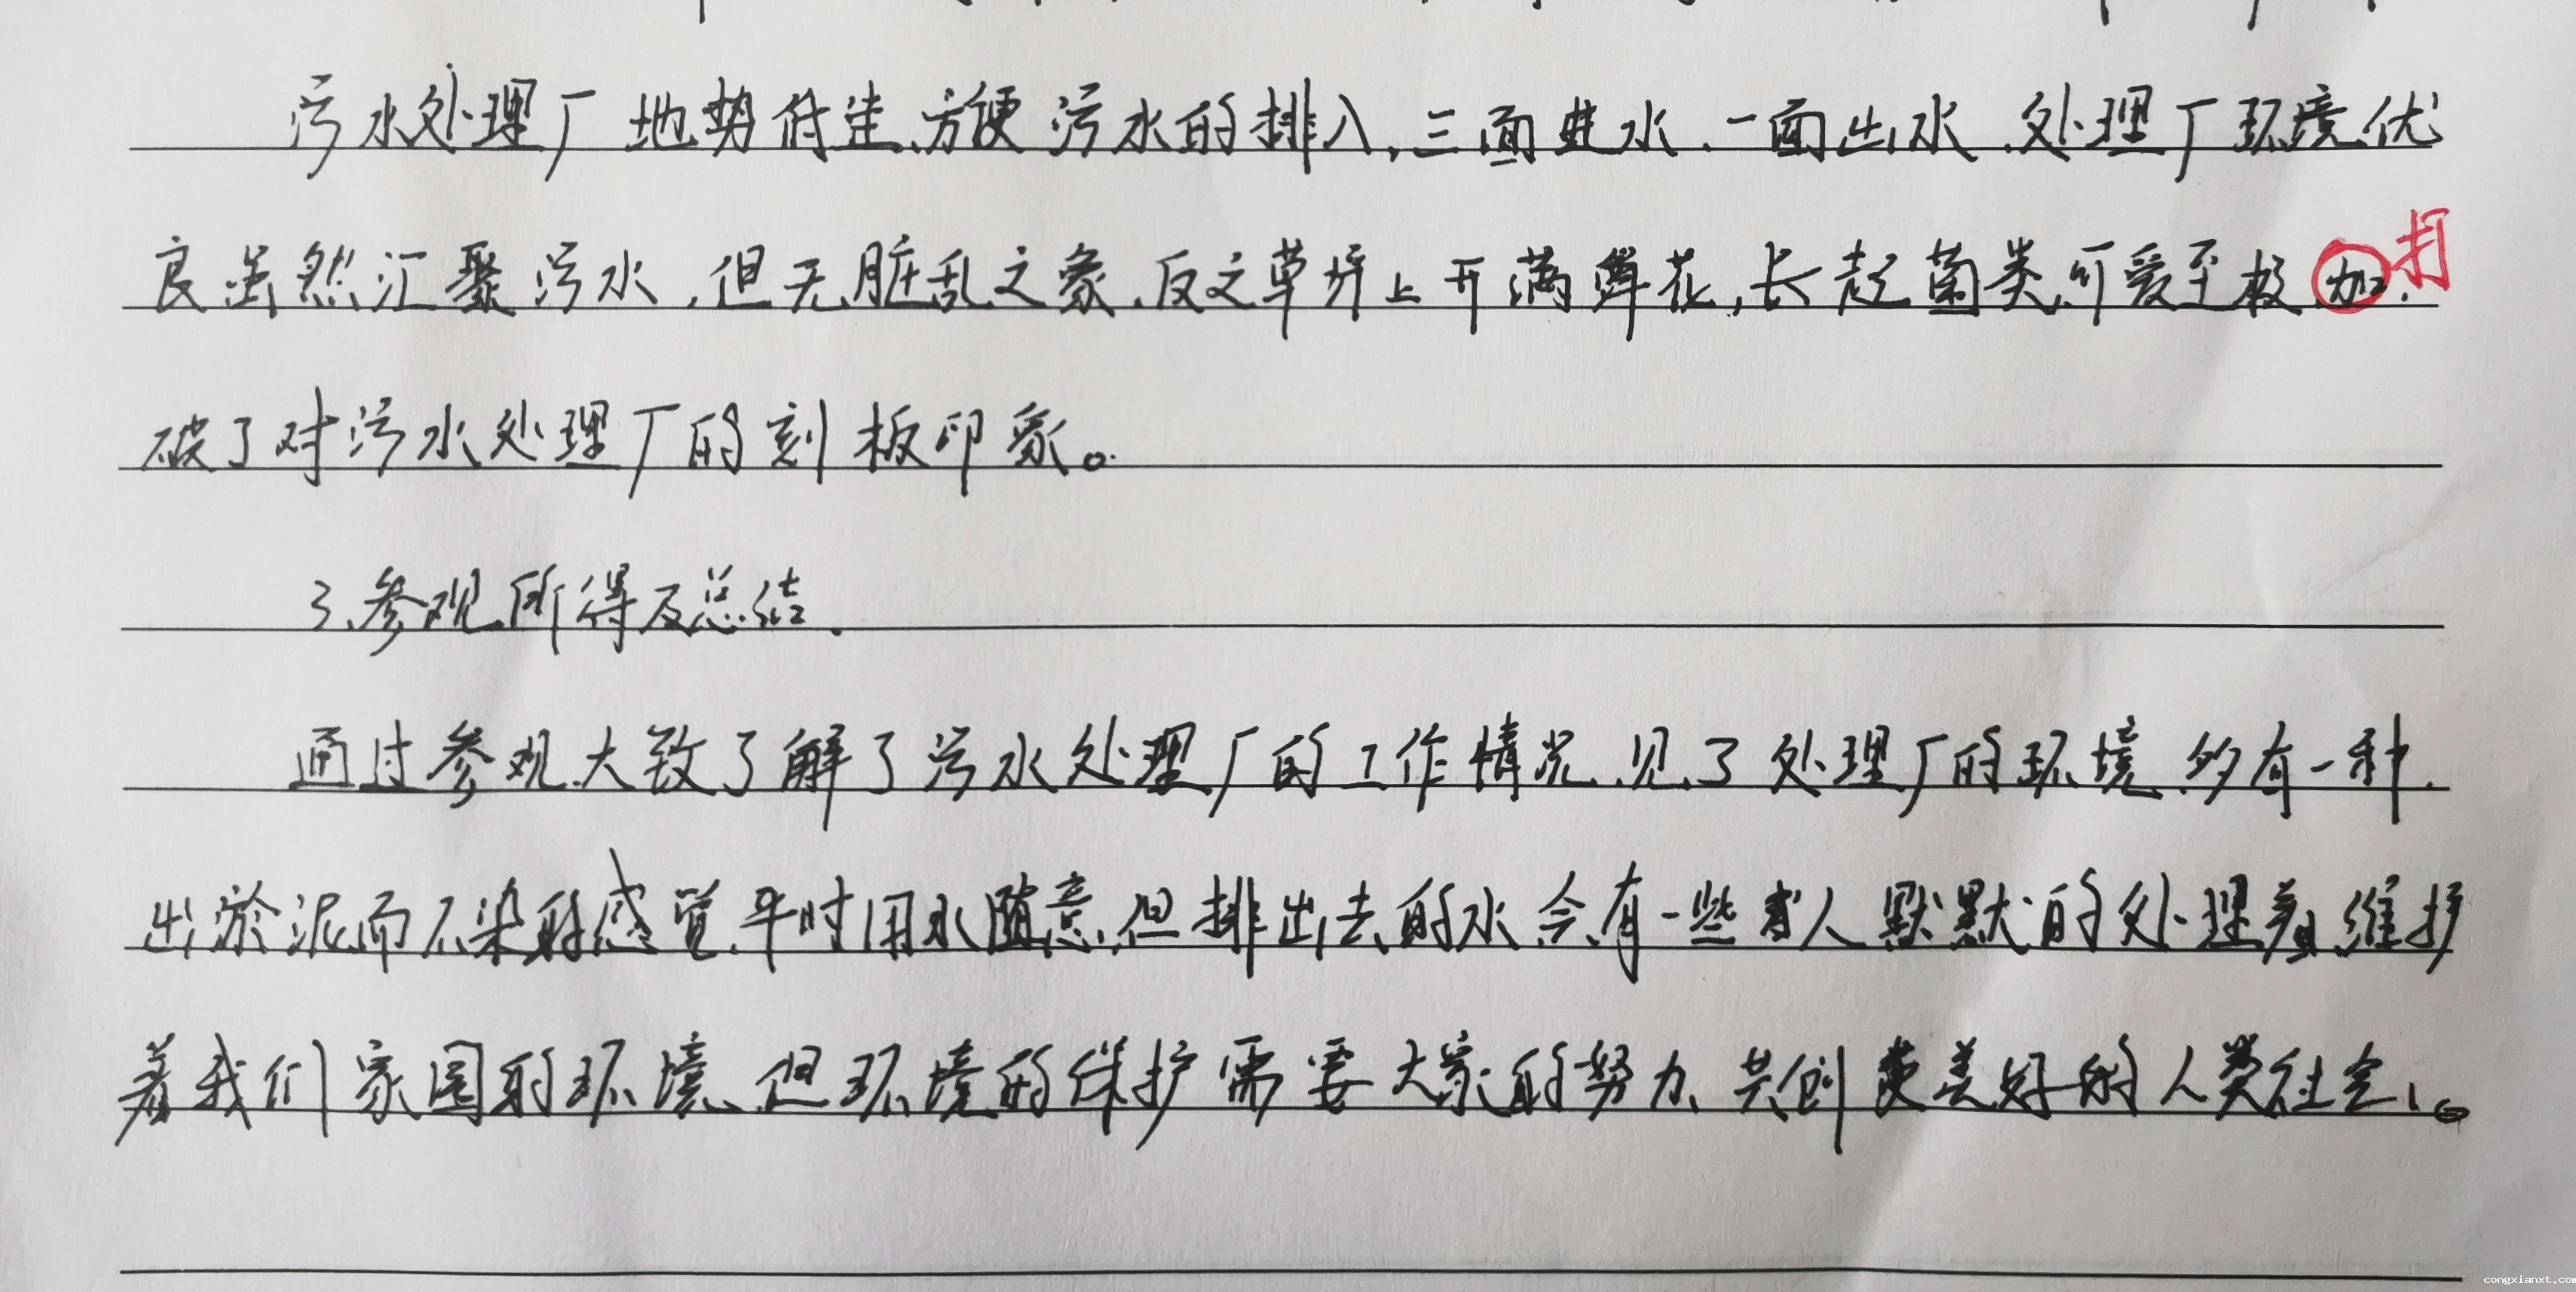 污水处理厂地势低洼、方便污水的排入,三面进水、一面出水、处理厂环境优
良虽然汇聚污水,但无脏乱之象、反之草坪上开满鲜花,长起菌类、可爱至极、加、打
破了对污水处理厂的刻板印象。
3、参观所得及总结、
通过参观、大致了解了污水处理厂的工作情况、见了处理厂的环境、多有一种、
出淤泥而不染的感觉、平时用水随意、但排出去的水会有一些人默默的处理着、维护
着我们家园的环境、但环境的保护需要大家的努力、共创更美好的人类社会。
congxianxt.com